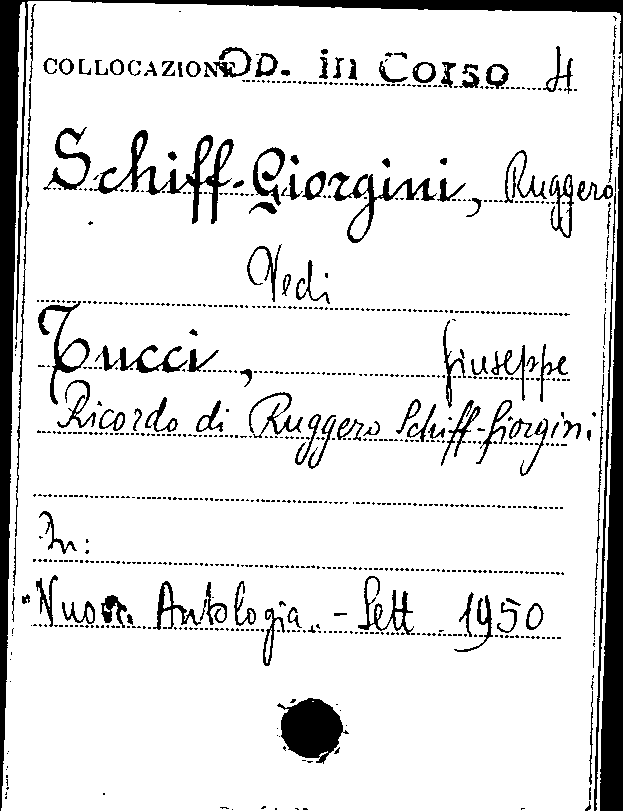 COLLOCAZIONE Op. in Corso 4
Schiff-Giorgini, Ruggero
Vedi
Tucci, Giuseppe
Ricordo di Ruggero Schiff-Giorgini
In:
"Nuova Antologia. - Sett. 1950